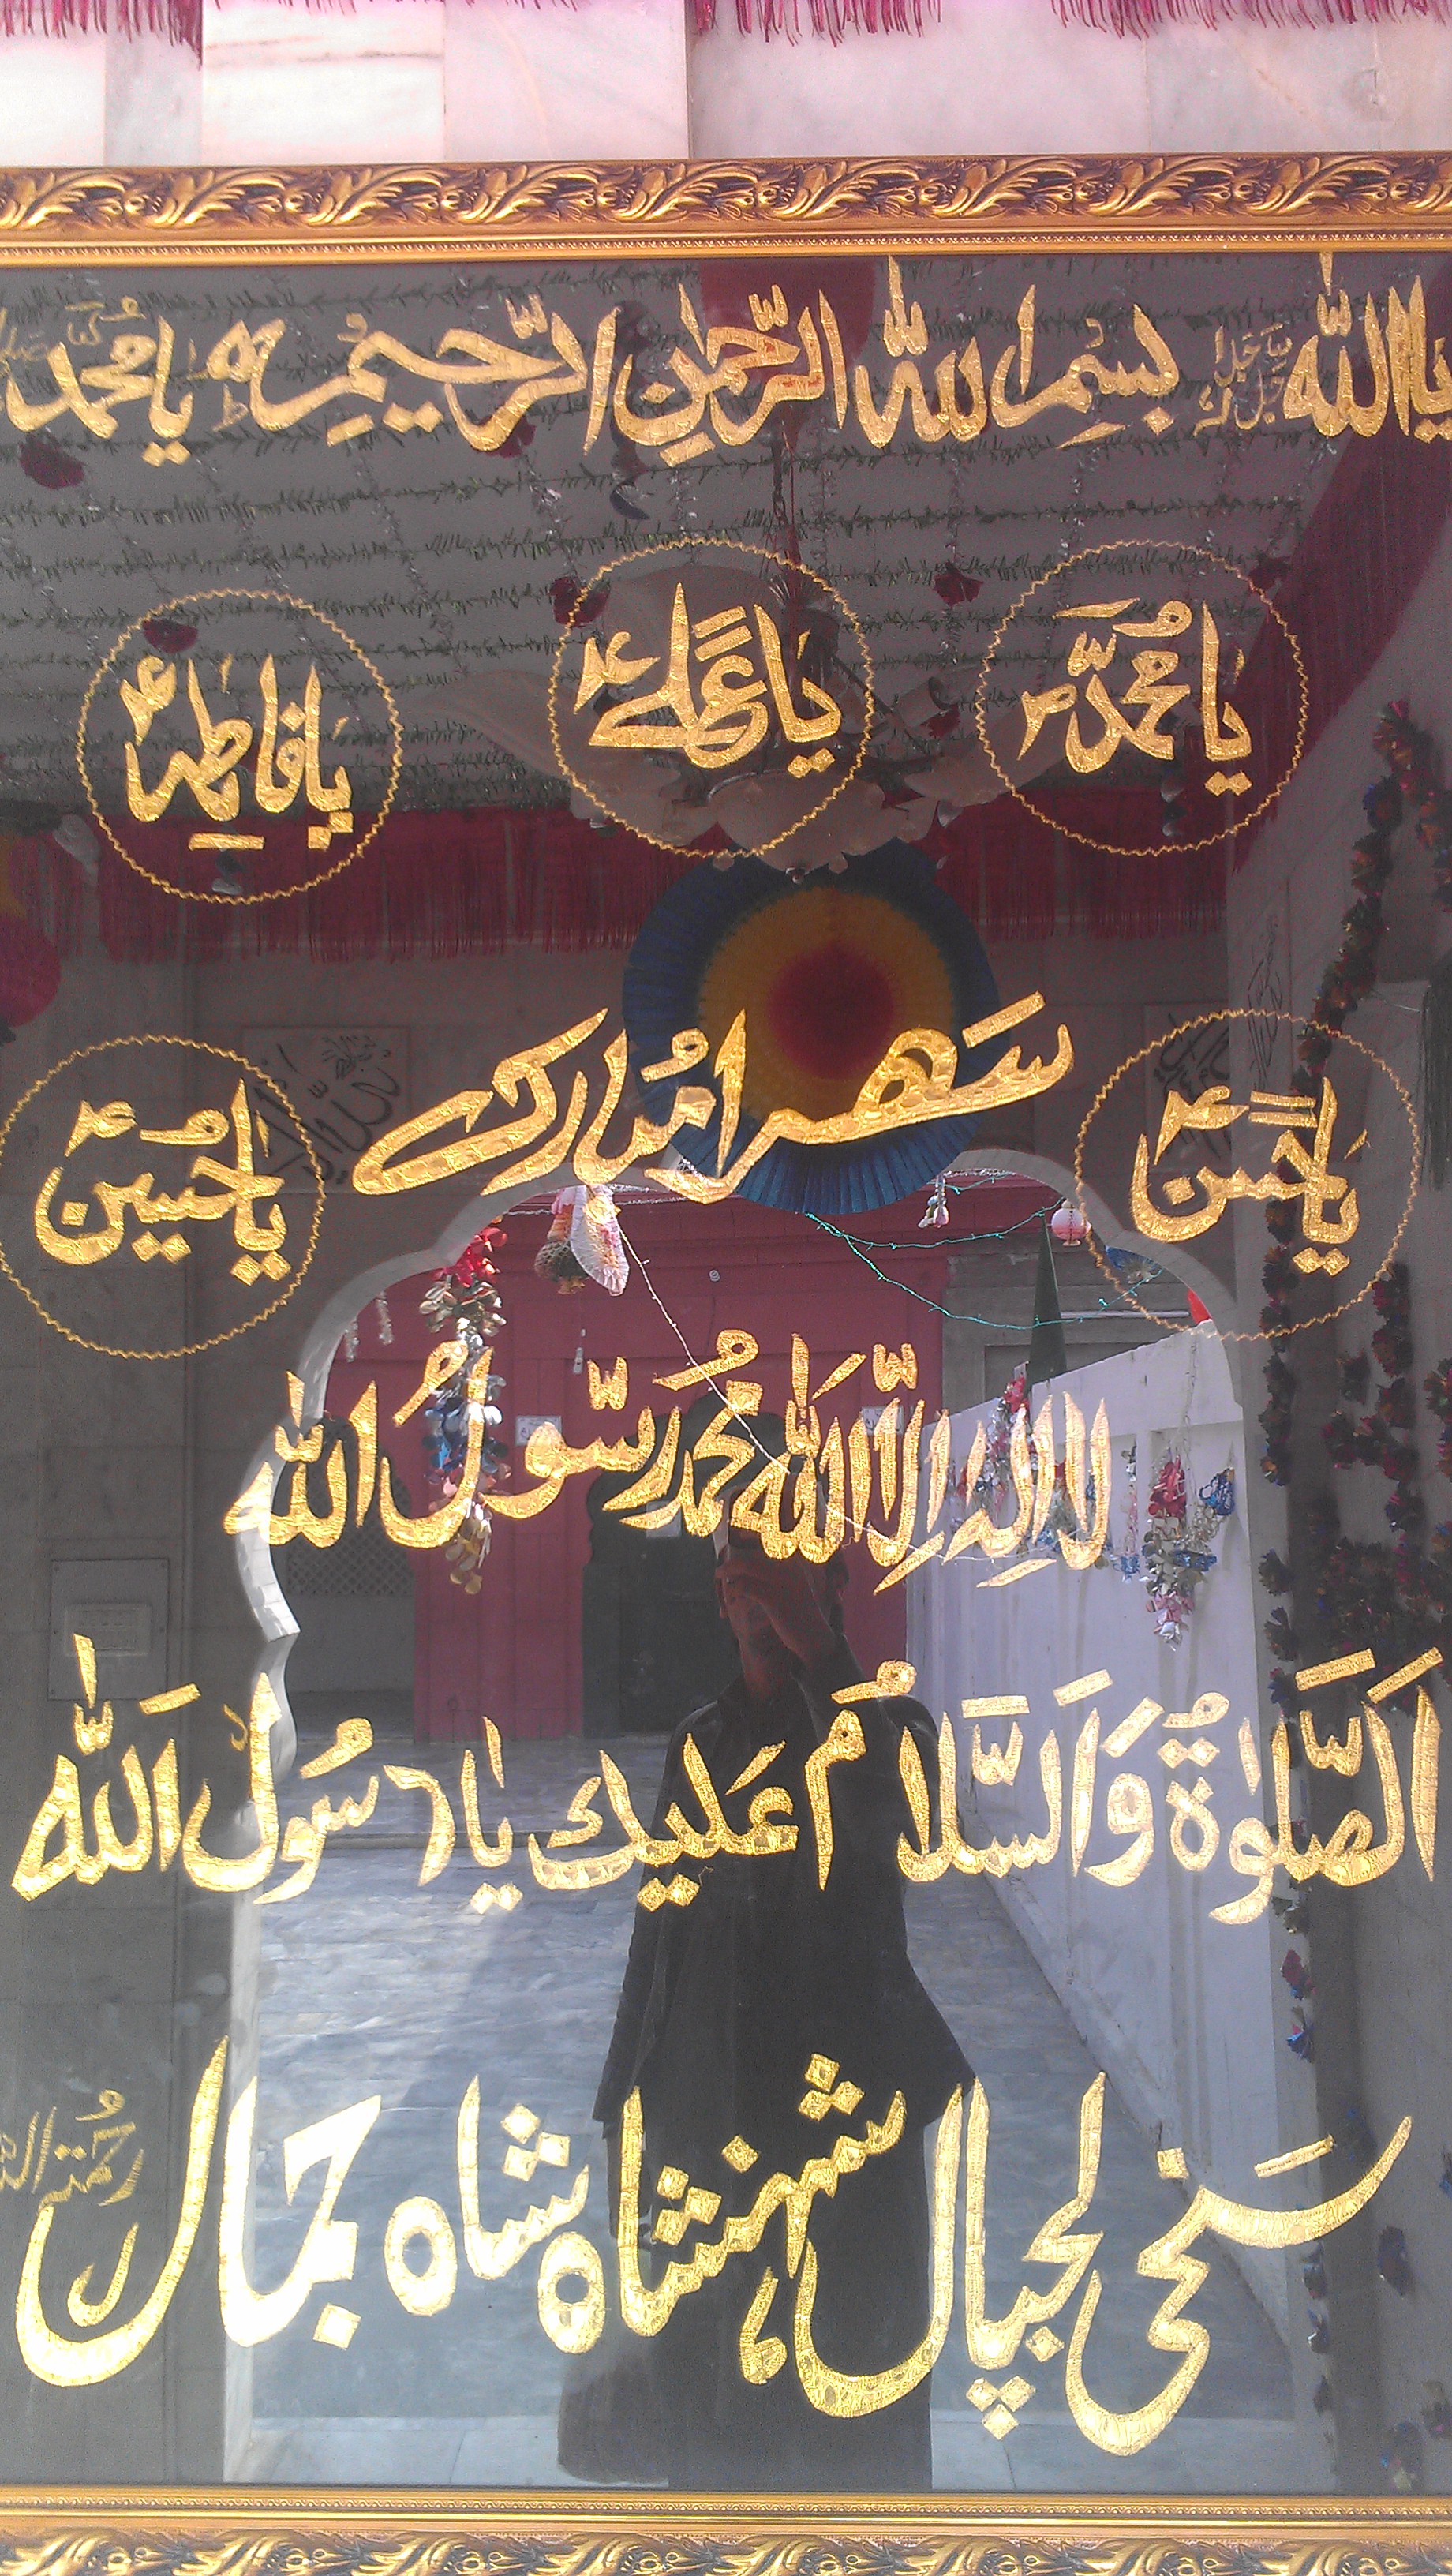 یا اللہ جل جلالہ بِسْمِ اللہِ الرَّحْمٰنِ الرَّحِیْمِ یا مُحَمَّد
یَا مُحَمَّدؐ یَا عَلیؑ یَا فَاطِمہؑ
یَا حَسنؑ سَہرا مُبارک یَا حُسینؑ
لا اِلٰہ اِلَّا اللہ مُحمد رسّولُ اللہ
اَلصَّلوٰۃُ وَالسَّلَامُ عَلَیك یَا رَسُوْلَ اللہ
سَخی لجپال شہنشاہ شاہ جمال رحمتہ اللہ